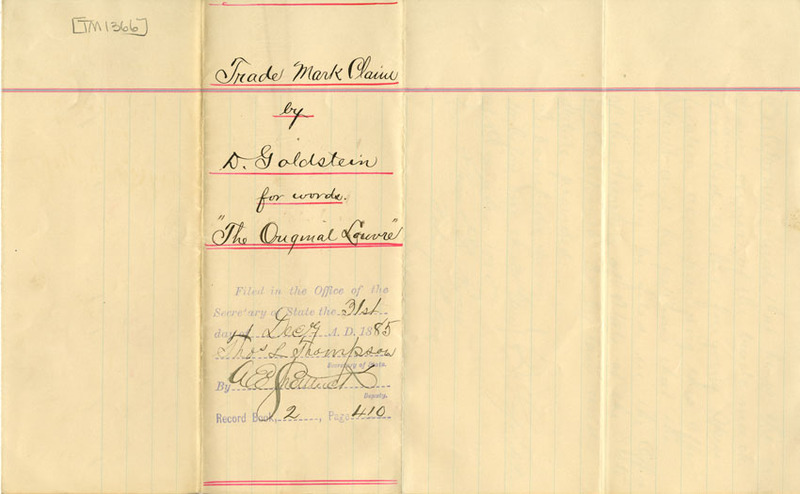 [TM1366]
Trade Mark Claim
by
D. Goldstein
for words.
"The Original Louvre"
Filed in the Office of the
Secretary of State the 31st
day of Dec A. D. 1885
Thos L Thompson
Secretary of State.
By
Deputy.
Record Book, 2, Page 410